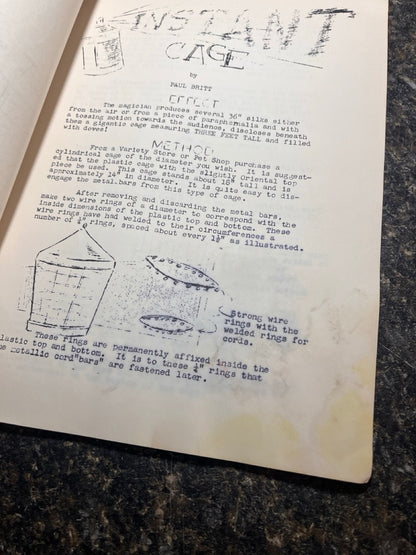 INSTANT
CAGE
by
PAUL BRITT
EFFECT
The magician produces several 36" silks either
from the air or from a piece of paraphernalia and with
a tossing motion towards the audience, discloses beneath
them a gigantic cage measuring THREE FEET TALL and filled
with doves!
METHOD
From a Variety Store or Pet Shop purchase a
cylindrical cage of the diameter you wish. It is suggest-
ed that the plastic cage with the slightly Oriental top
piece be used. This cage stands about 18" tall and is
approximately 14" in diameter. It is quite easy to dis-
engage the metal bars from this type of cage.
After removing and discarding the metal bars,
make two wire rings of a diameter to correspond with the
inside dimensions of the plastic top and bottom. These
wire rings have had welded to their circumferences a
number of ¼" rings, spaced about every 1½" as illustrated.
Strong wire
rings with the
welded rings for
cords.
These rings are permanently affixed inside the
plastic top and bottom. It is to these ¼" rings that
metallic cord"bars" are fastened later.